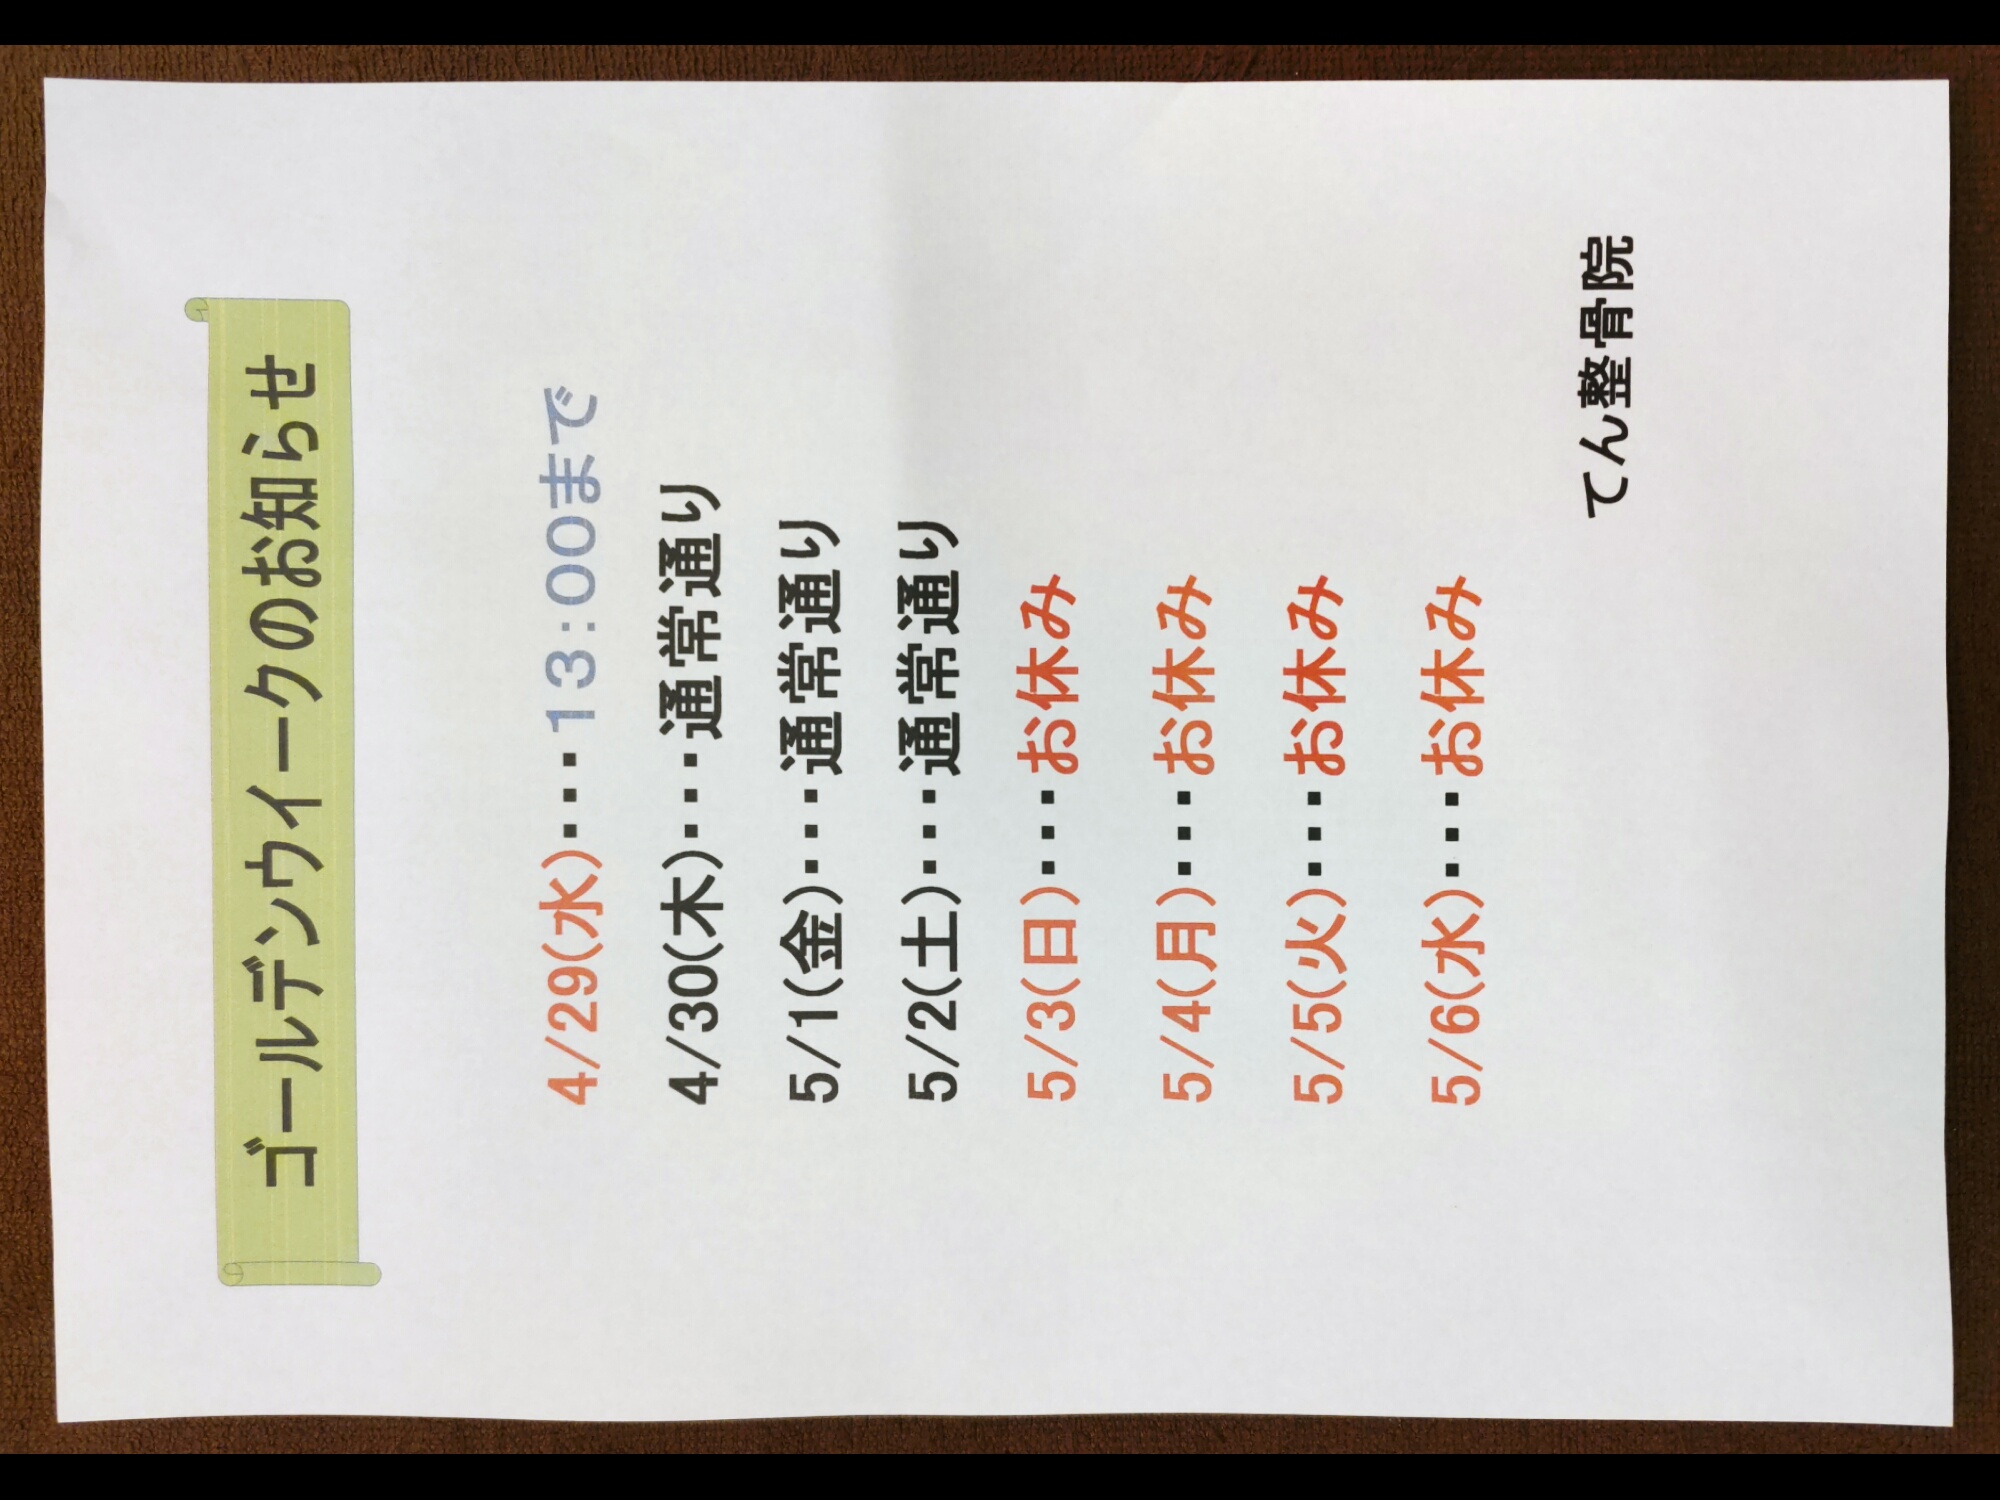 ゴールデンウィークのお知らせ
4/29(水)・・・13:00まで
4/30(木)・・・通常通り
5/1(金)・・・通常通り
5/2(土)・・・通常通り
5/3(日)・・・お休み
5/4(月)・・・お休み
5/5(火)・・・お休み
5/6(水)・・・お休み
てん整骨院